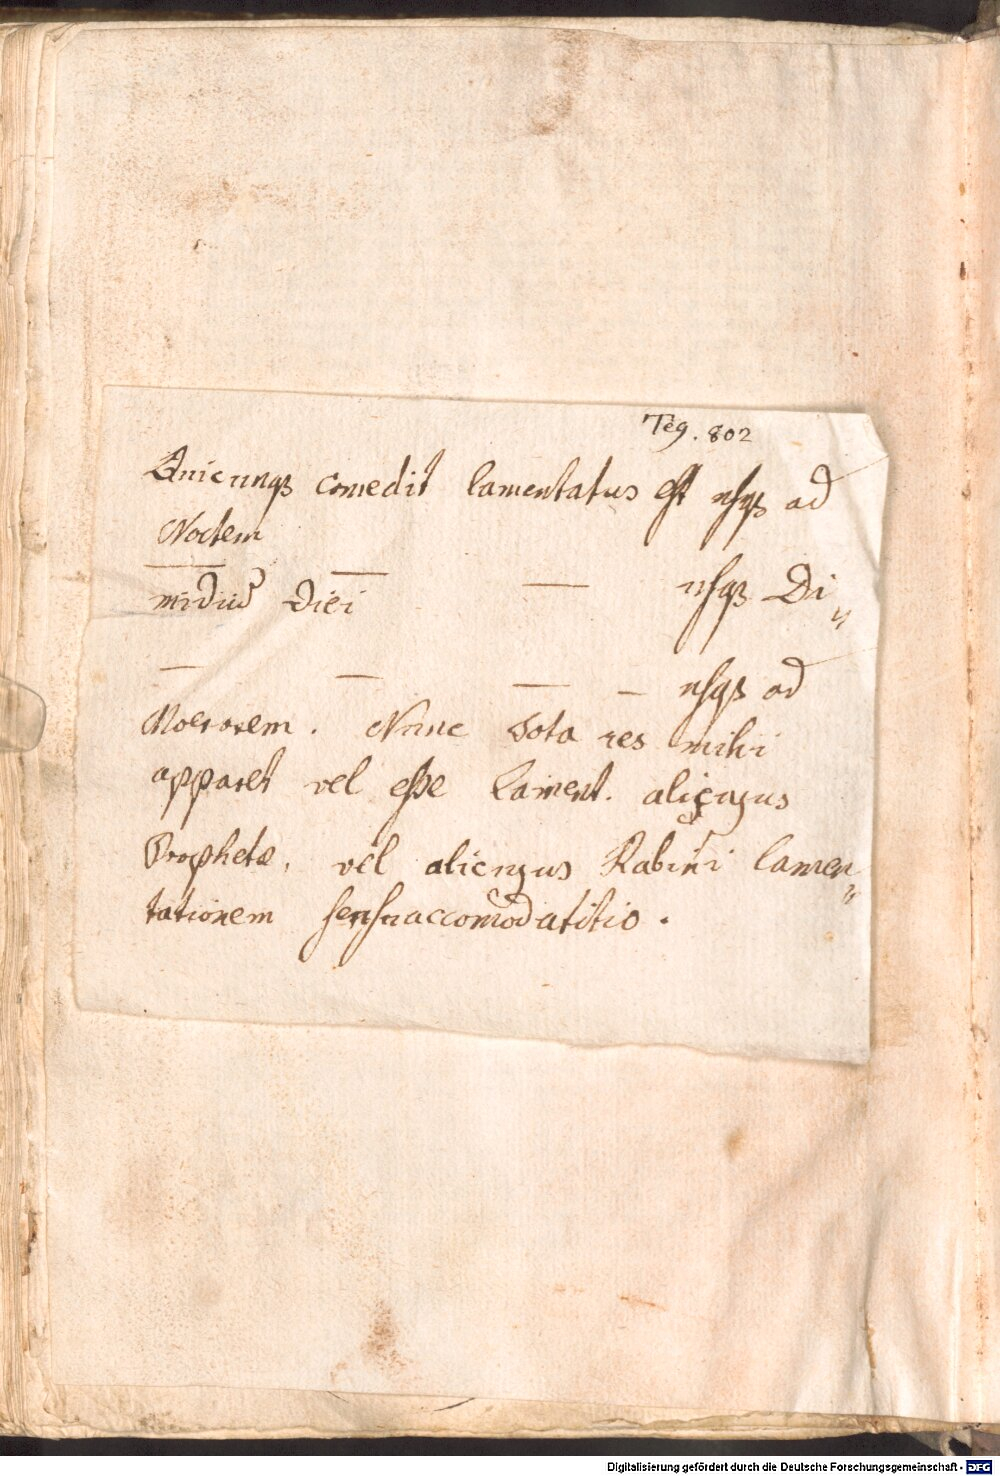 Teg. 802
Quicunqꝫ comedit lamentatus est usqꝫ ad
Noctem
— — — usqꝫ Di„
midiũ Diei
— — — — usqꝫ ad
Moerorem. Nunc tota res mihi
apparet vel esse Lament. alicujus
Prophetæ, vel alicujus Rabini lamen„
tationem sensu accom̃odatitio.
Digitalisierung gefördert durch die Deutsche Forschungsgemeinschaft - DFG